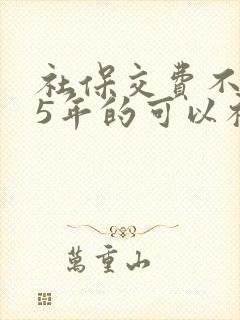 社保交費不
5年的可以
萬重山